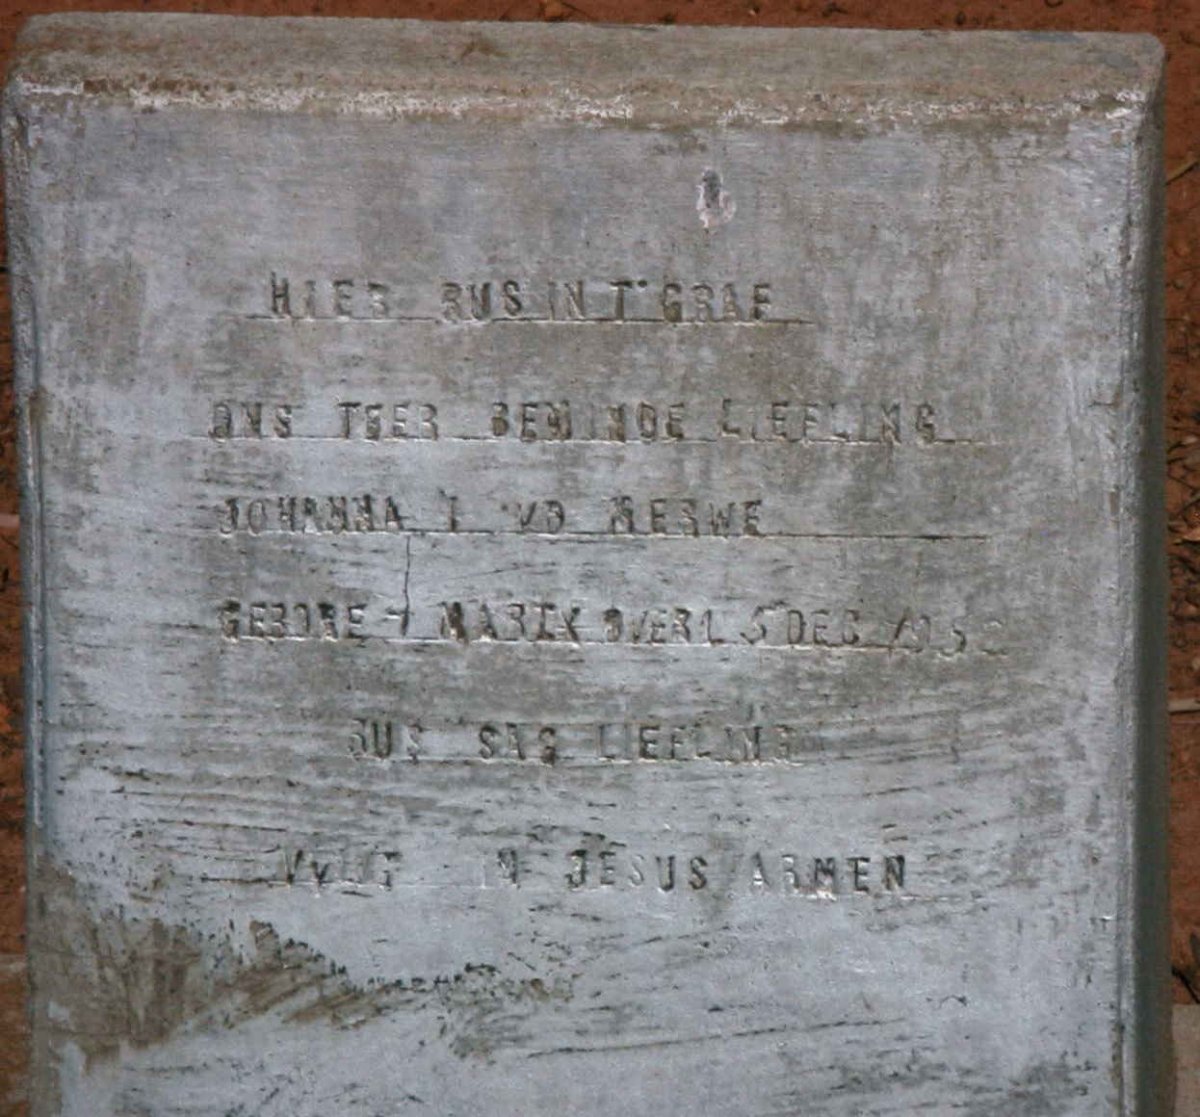 HIER RUS IN T' GRAF
ONS TEER BEMINDE LIEFLING
JOHANNA I VD MERWE
GEBORE 7 MARIX OVERL 5 DEC
RUS SAG LIEFLING
IN JESUS ARMEN